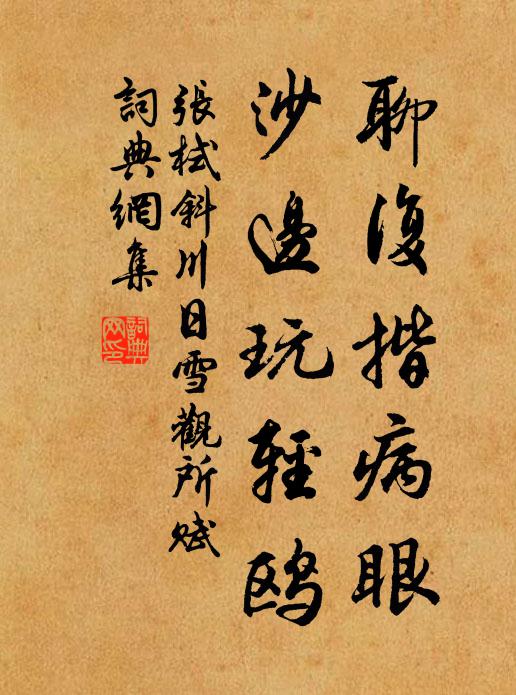 聊復揩病眼
沙邊玩輕鷗
張栻斜川日雪觀所賦
詞典網集
詞典網印